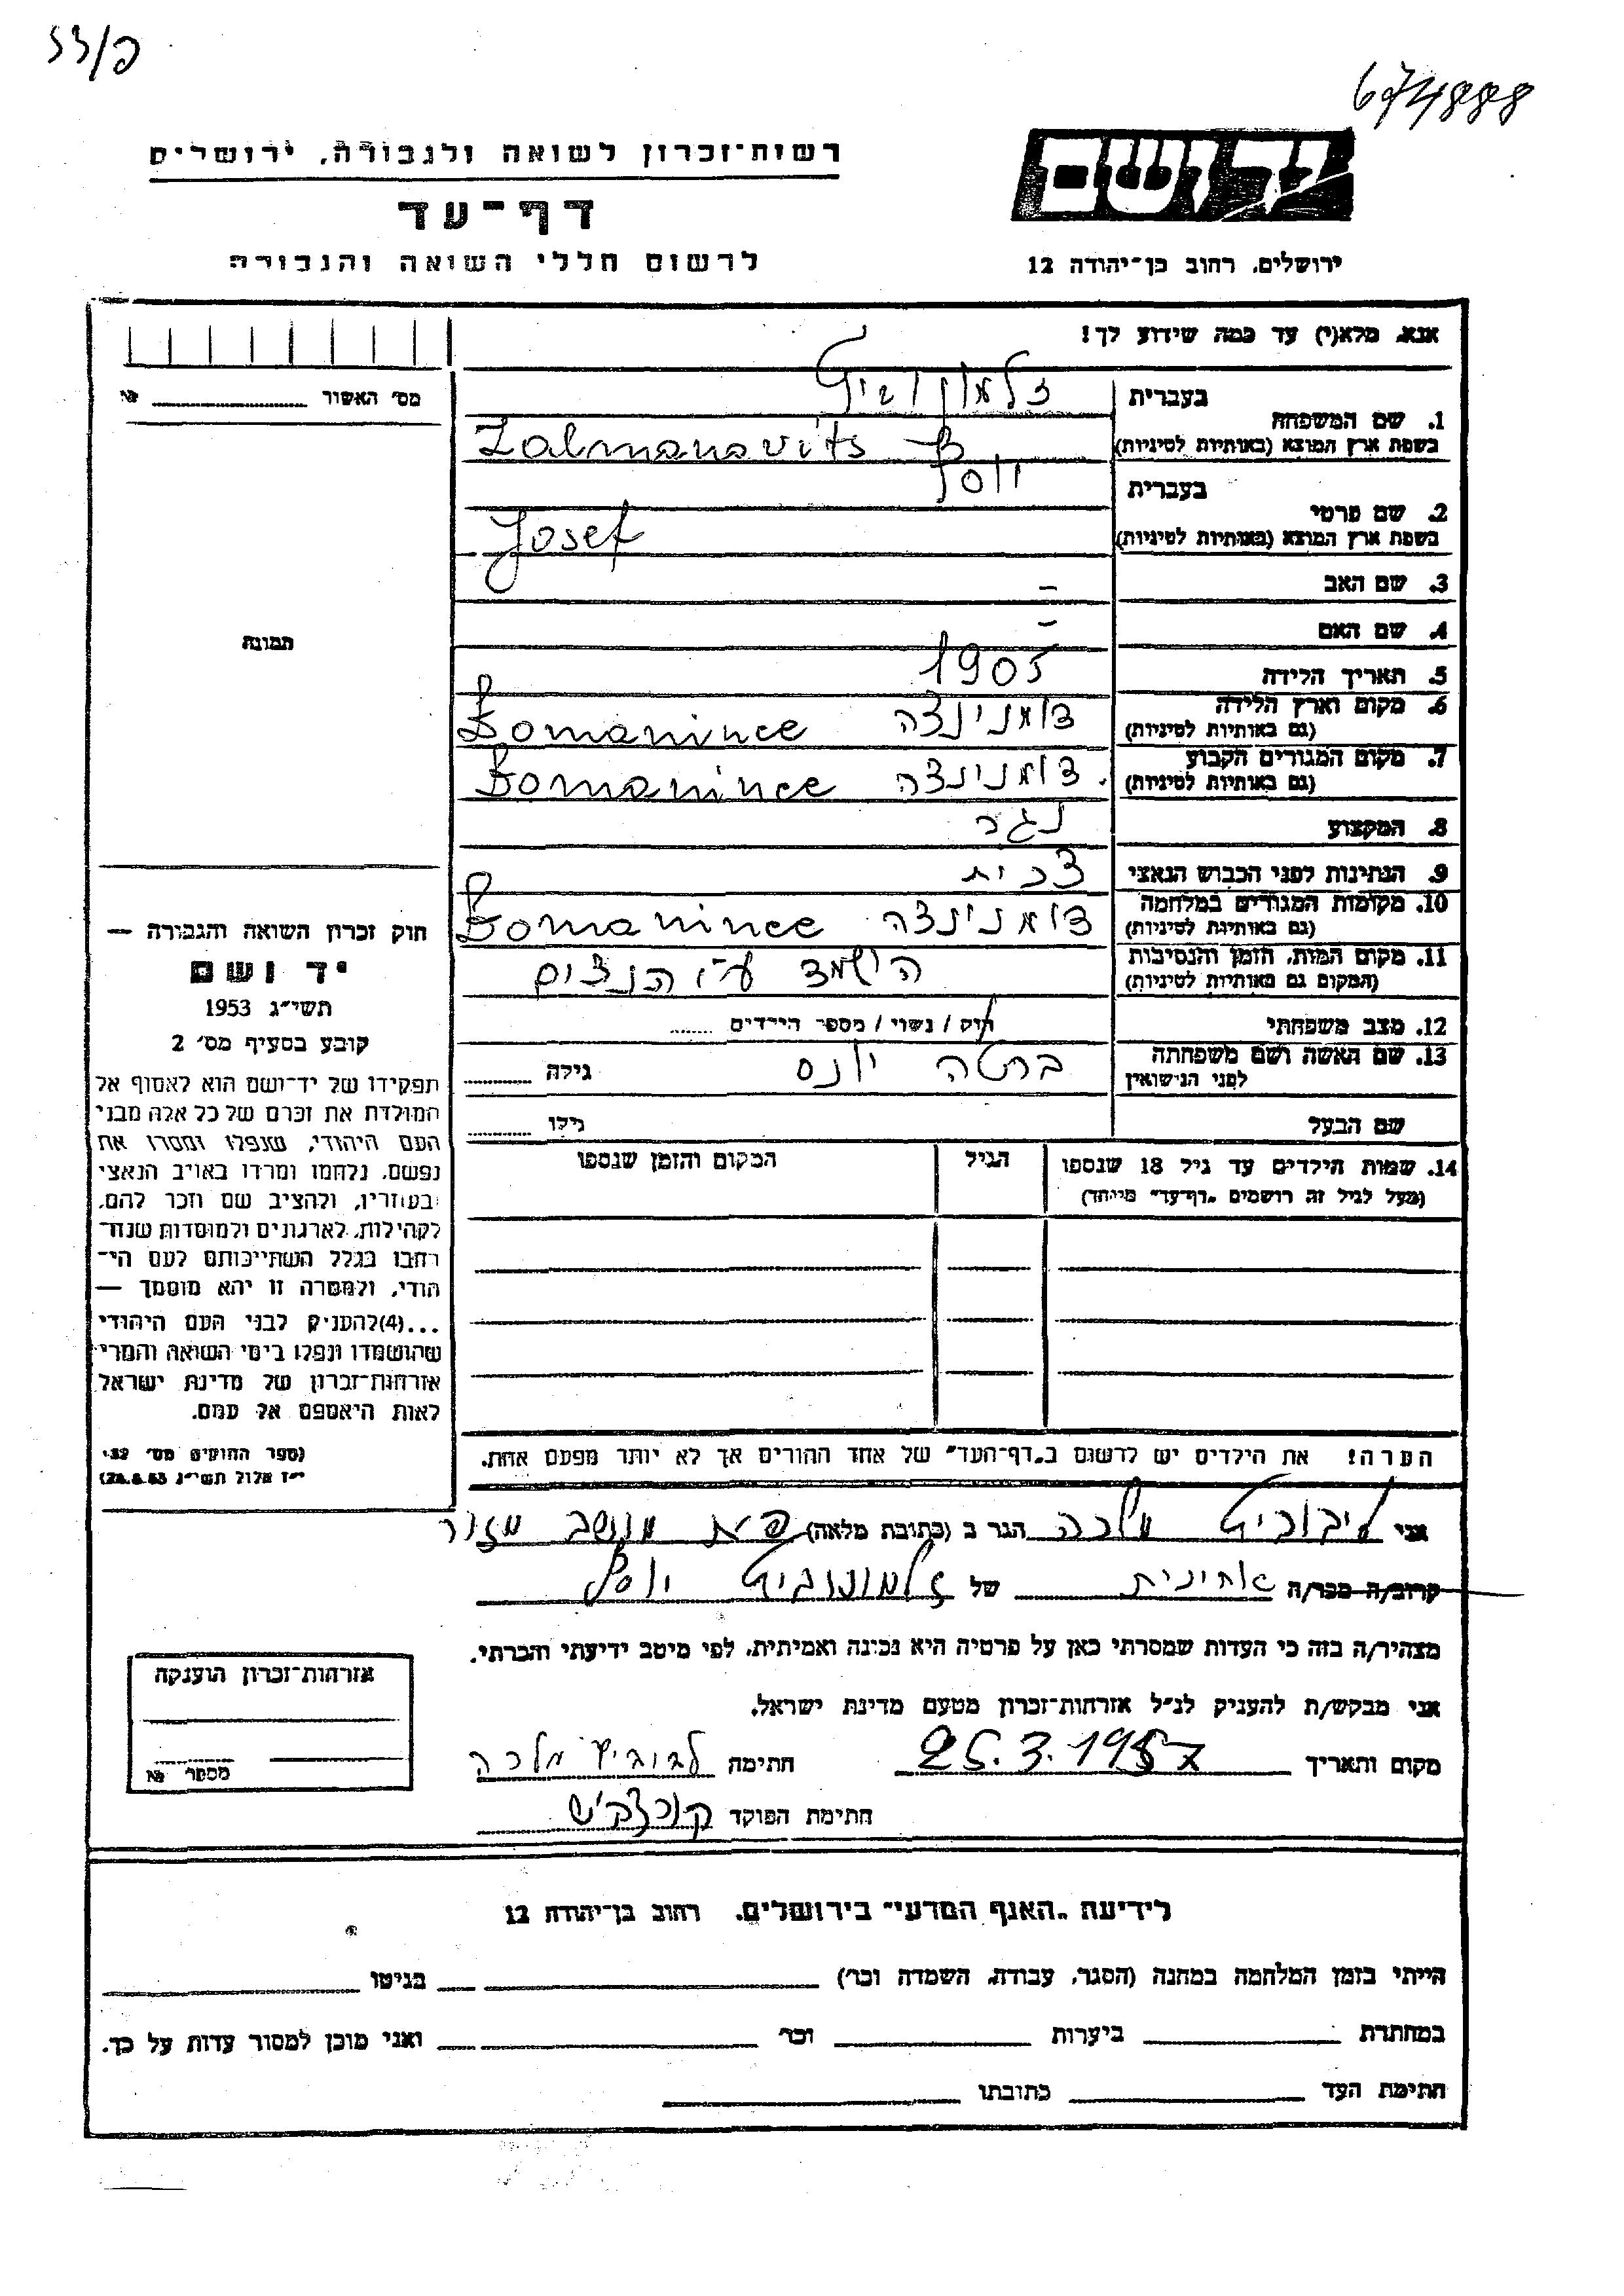 פ/לל
674888
יד ושם
רשות־זכרון לשואה ולגבורה, ירושלים
דף־עד
לרשום חללי השואה והגבורה
ירושלים, רחוב בן־יהודה 12
אנא, מלא(י) עד כמה שידוע לך!
מס׳ האשור №
בעברית
1. שם המשפחה
בשפת ארץ המוצא (באותיות לטיניות) Zalmanavits
בעברית יוסף
2. שם פרטי
בשפת ארץ המוצא (באותיות לטיניות) Josef
3. שם האב –
4. שם האם –
5. תאריך הלידה 1905
6. מקום וארץ הלידה דומנינצה Domanince
(גם באותיות לטיניות)
7. מקום המגורים הקבוע דומנינצה Domanince
(גם באותיות לטיניות)
8. המקצוע נגר
9. הנתינות לפני הכבוש הנאצי צכית
10. מקומות המגורים במלחמה דומנינצה Domanince
(גם באותיות לטיניות)
11. מקום המות, הזמן והנסיבות הושמד ע״י הנצים
(המקום גם באותיות לטיניות)
12. מצב משפחתי רוק / נשוי / מספר הילדים
13. שם האשה ושם משפחתה ברטה יונס גילה
לפני הנישואין
שם הבעל גילו
14. שמות הילדים עד גיל 18 שנספו הגיל המקום והזמן שנספו
(מעל לגיל זה רושמים „דף־עד” מיוחד)
הערה! את הילדים יש לרשום ב„דף־העד” של אחד ההורים אך לא יותר מפעם אחת.
תמונה
חוק זכרון השואה והגבורה —
יד ושם
תשי״ג 1953
קובע בסעיף מס׳ 2
תפקידו של יד־ושם הוא לאסוף אל
המולדת את זכרם של כל אלה מבני
העם היהודי, שנפלו ומסרו את
נפשם, נלחמו ומרדו באויב הנאצי
ובעוזריו, ולהציב שם וזכר להם,
לקהילות, לארגונים ולמוסדות שנח־
רבו בגלל השתייכותם לעם הי־
הודי, ולמטרה זו יהא מוסמך —
...(4)להעניק לבני העם היהודי
שהושמדו ונפלו בימי השואה והמרי
אזרחות־זכרון של מדינת ישראל
לאות היאספם אל עמם.
(ספר החוקים מס׳ 132
י״ז אלול תשי״ג 28.8.53)
אני ליבוביט מלכה הגר ב (כתובת מלאה) פ״ת מושב מזור
קרוב/ה מכר/ה אחינית של זלמונוביט יוסף
מצהיר/ה בזה כי העדות שמסרתי כאן על פרטיה היא נכונה ואמיתית, לפי מיטב ידיעתי והכרתי.
אני מבקש/ת להעניק לנ״ל אזרחות־זכרון מטעם מדינת ישראל.
מקום ותאריך 25.3.1957 חתימה לבוביץ מלכה
חתימת הפוקד
אזרחות־זכרון הוענקה
מספר №
לידיעת „האגף המדעי” בירושלים, רחוב בן־יהודה 12
הייתי בזמן המלחמה במחנה (הסגר, עבודה, השמדה וכר׳) בגיטו
במחתרת ביערות וכר׳ ואני מוכן למסור עדות על כך.
חתימת העד כתובתו